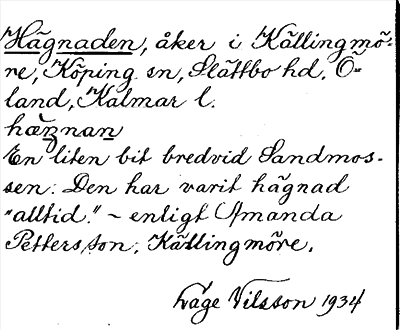 Hägnaden, åker i Källingmö-
re, Köping sn, Slättbo hd, Ö-
land, Kalmar l.
hæŋnan
En liten bit bredvid Sandmos-
sen. Den har varit hägnad
"alltid." ~ enligt Amanda
Pettersson, Källingmöre.
Låge Nilsson 1934